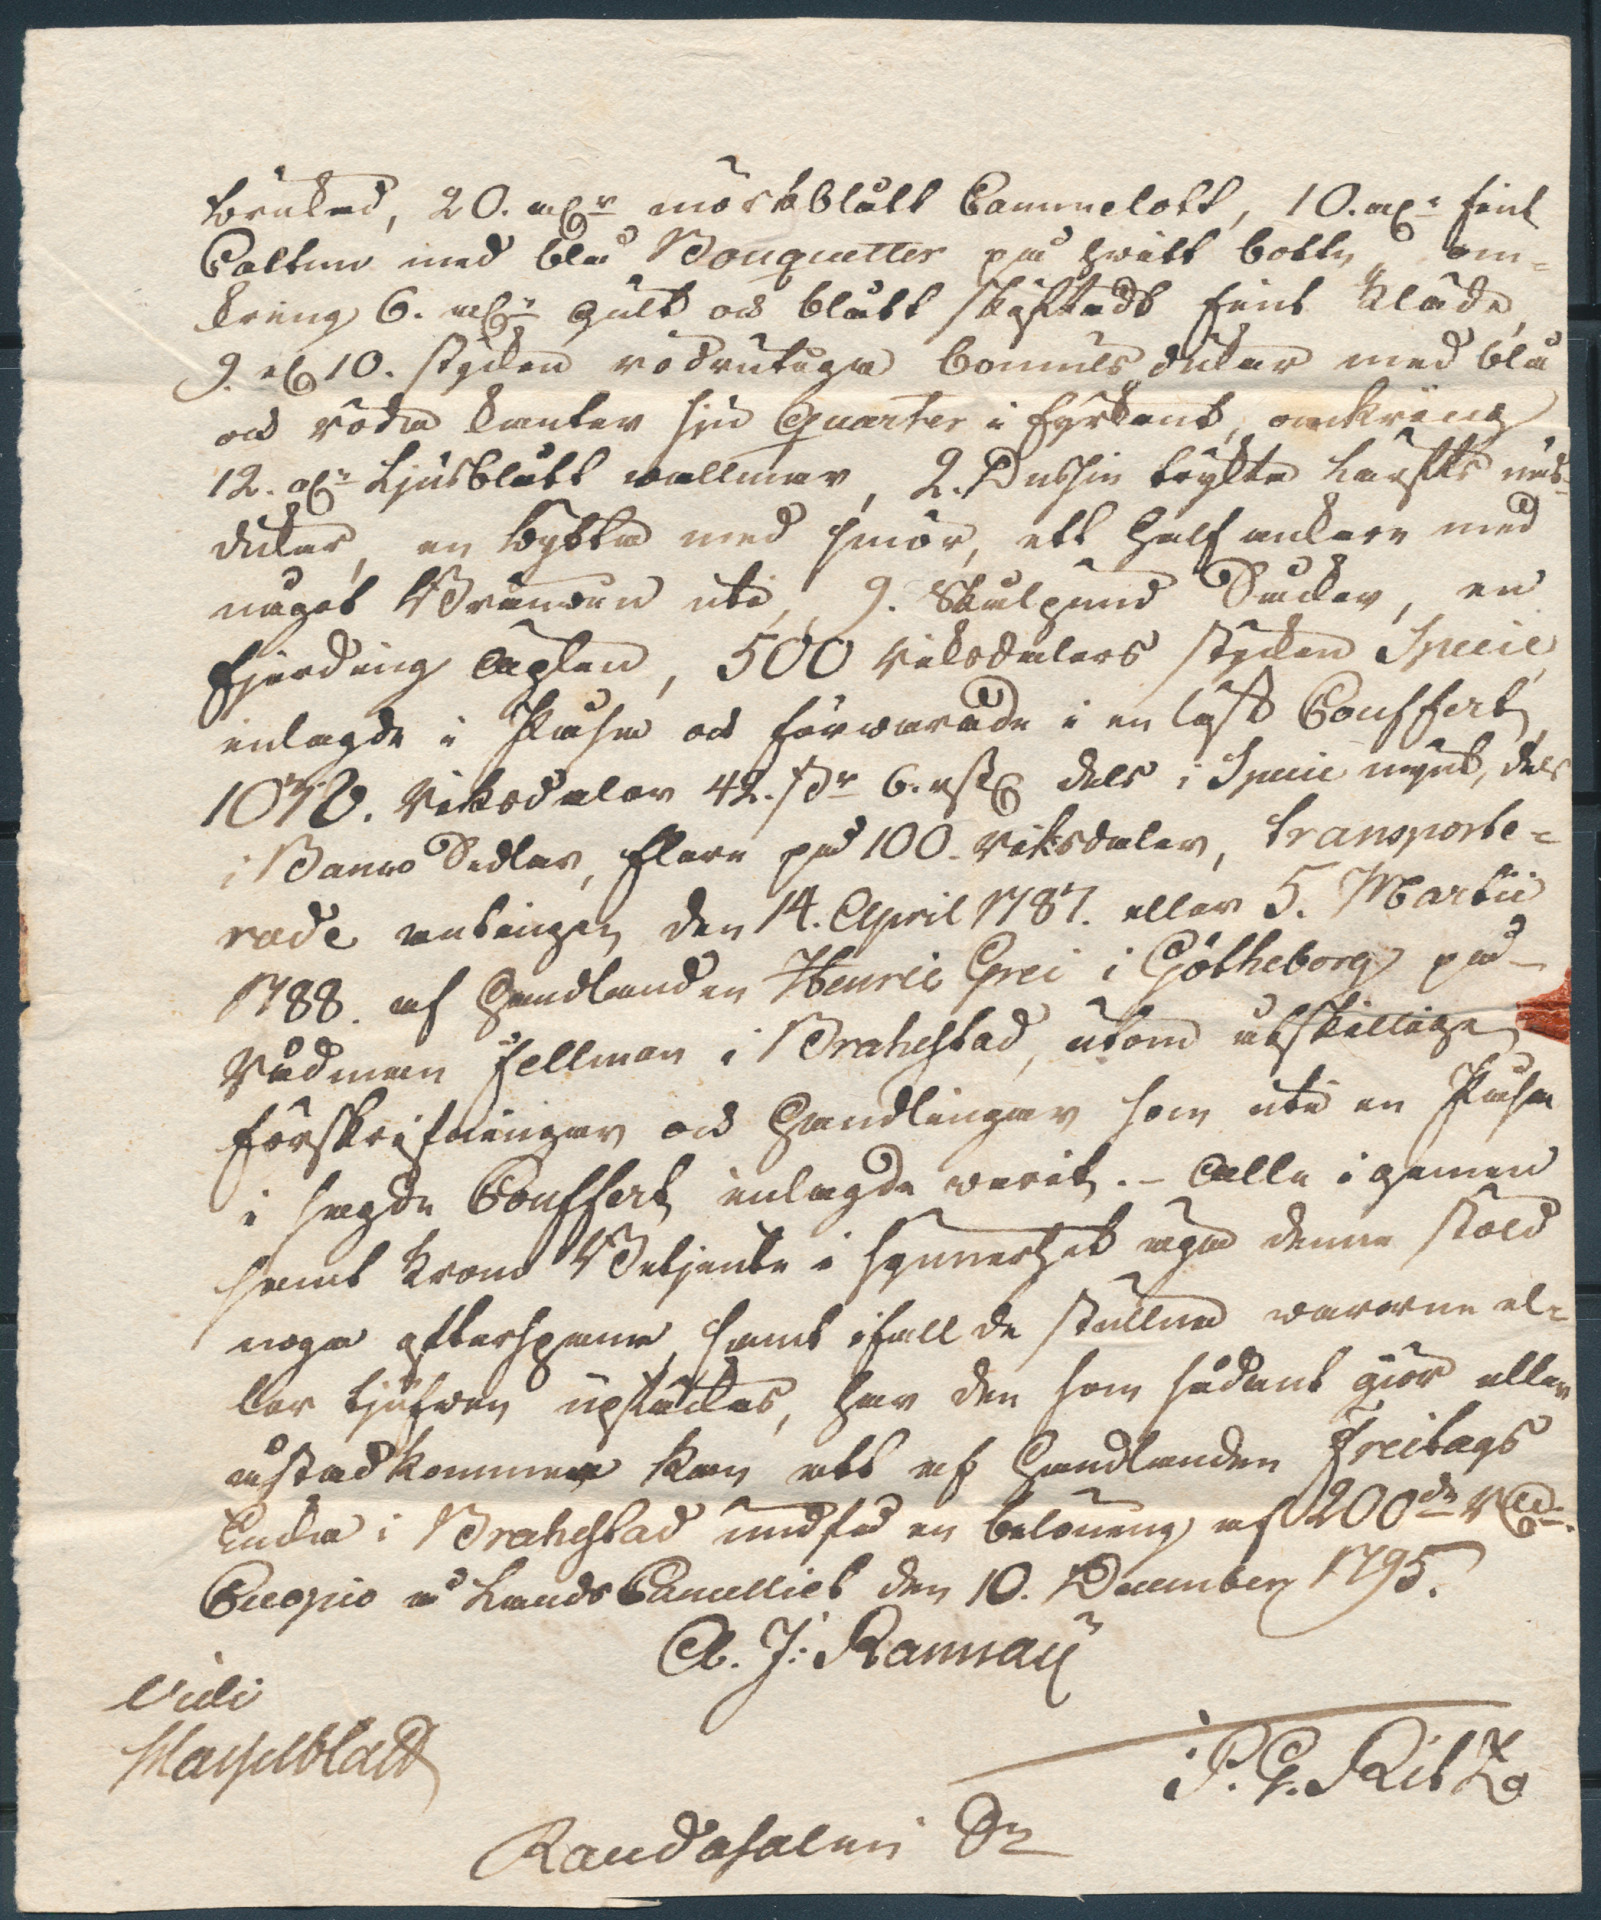 brukad, 20. al:r mörkblått Cammelott, 10. al:r fint
Cattun med blå Bouquetter på hvitt botten, om-
kring 6. al:r gult och blått skiftadt fint kläde,
9. el 10. stycken rödrutuga bomuls dukar med blå
och röda kanter sju quarter i fyrkant, omkring
12. al:r Ljusblått wallmar, 2. Dussin tryckta lärfts näs-
dukar, en bytta med smör, ett half ankare med
något Bränwin uti, 9. Skålpund Sucker, en
fjerding äplen, 500 Riksdalers stycken Specie,
inlagde i Påsar och förwarade i en låst Couffert,
1078. Riksdaler 42. s:r 6. dels i Specie mynt, dels
i Banco Sedlar, flere på 100. Riksdaler, transporte-
rade antingen den 14. April 1787. eller 5. Martii
1788. af Handlanden Henric Grei i Götheborg på
Rådman Fellman i Brahestad, utom åtskillige
förskrifningar och Handlingar som uti en Påse
i sagde Couffert inlagde warit. – Alle i gemen
samt Krono Betjente i synnerhet äga denne stöld
noga efterspana, samt ifall de stulna warorne el-
ler tjufwen uptäckes, har den som sådant giör eller
åstadkomma kan att af Handlanden Freitags
Enka i Brahestad undfå en belöning af 200de Rd:r.
Cuopio å Lands Cancelliet den 10. December 1795.
A. J: Ramsay
Vidi
Hasselblatt
P. G. Ritz
Randasalmi Sn